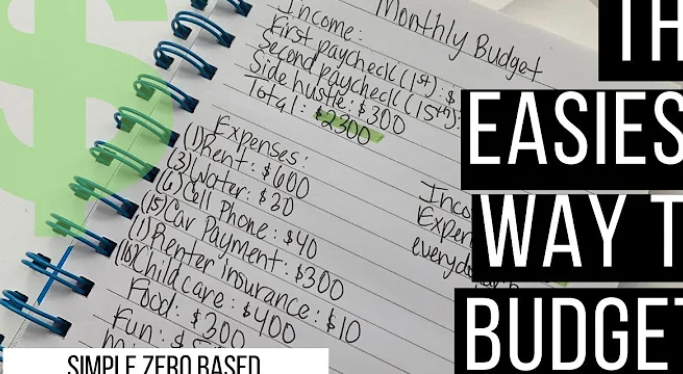 Monthly Budget
Income:
First paycheck (1st): $
Second paycheck (15th):
Side hustle: $300
Total: $2300
Expenses:
(1) Rent: $600
(3) Water: $20
(6) Cell Phone: $40
(15) Car Payment: $300
(1) Renter Insurance: $10
(16) Childcare: $400
Food: $200
Fun: $
Inco
Expen
everydo
TH
EASIES
WAY T
BUDGET
SIMPLE ZERO BASED